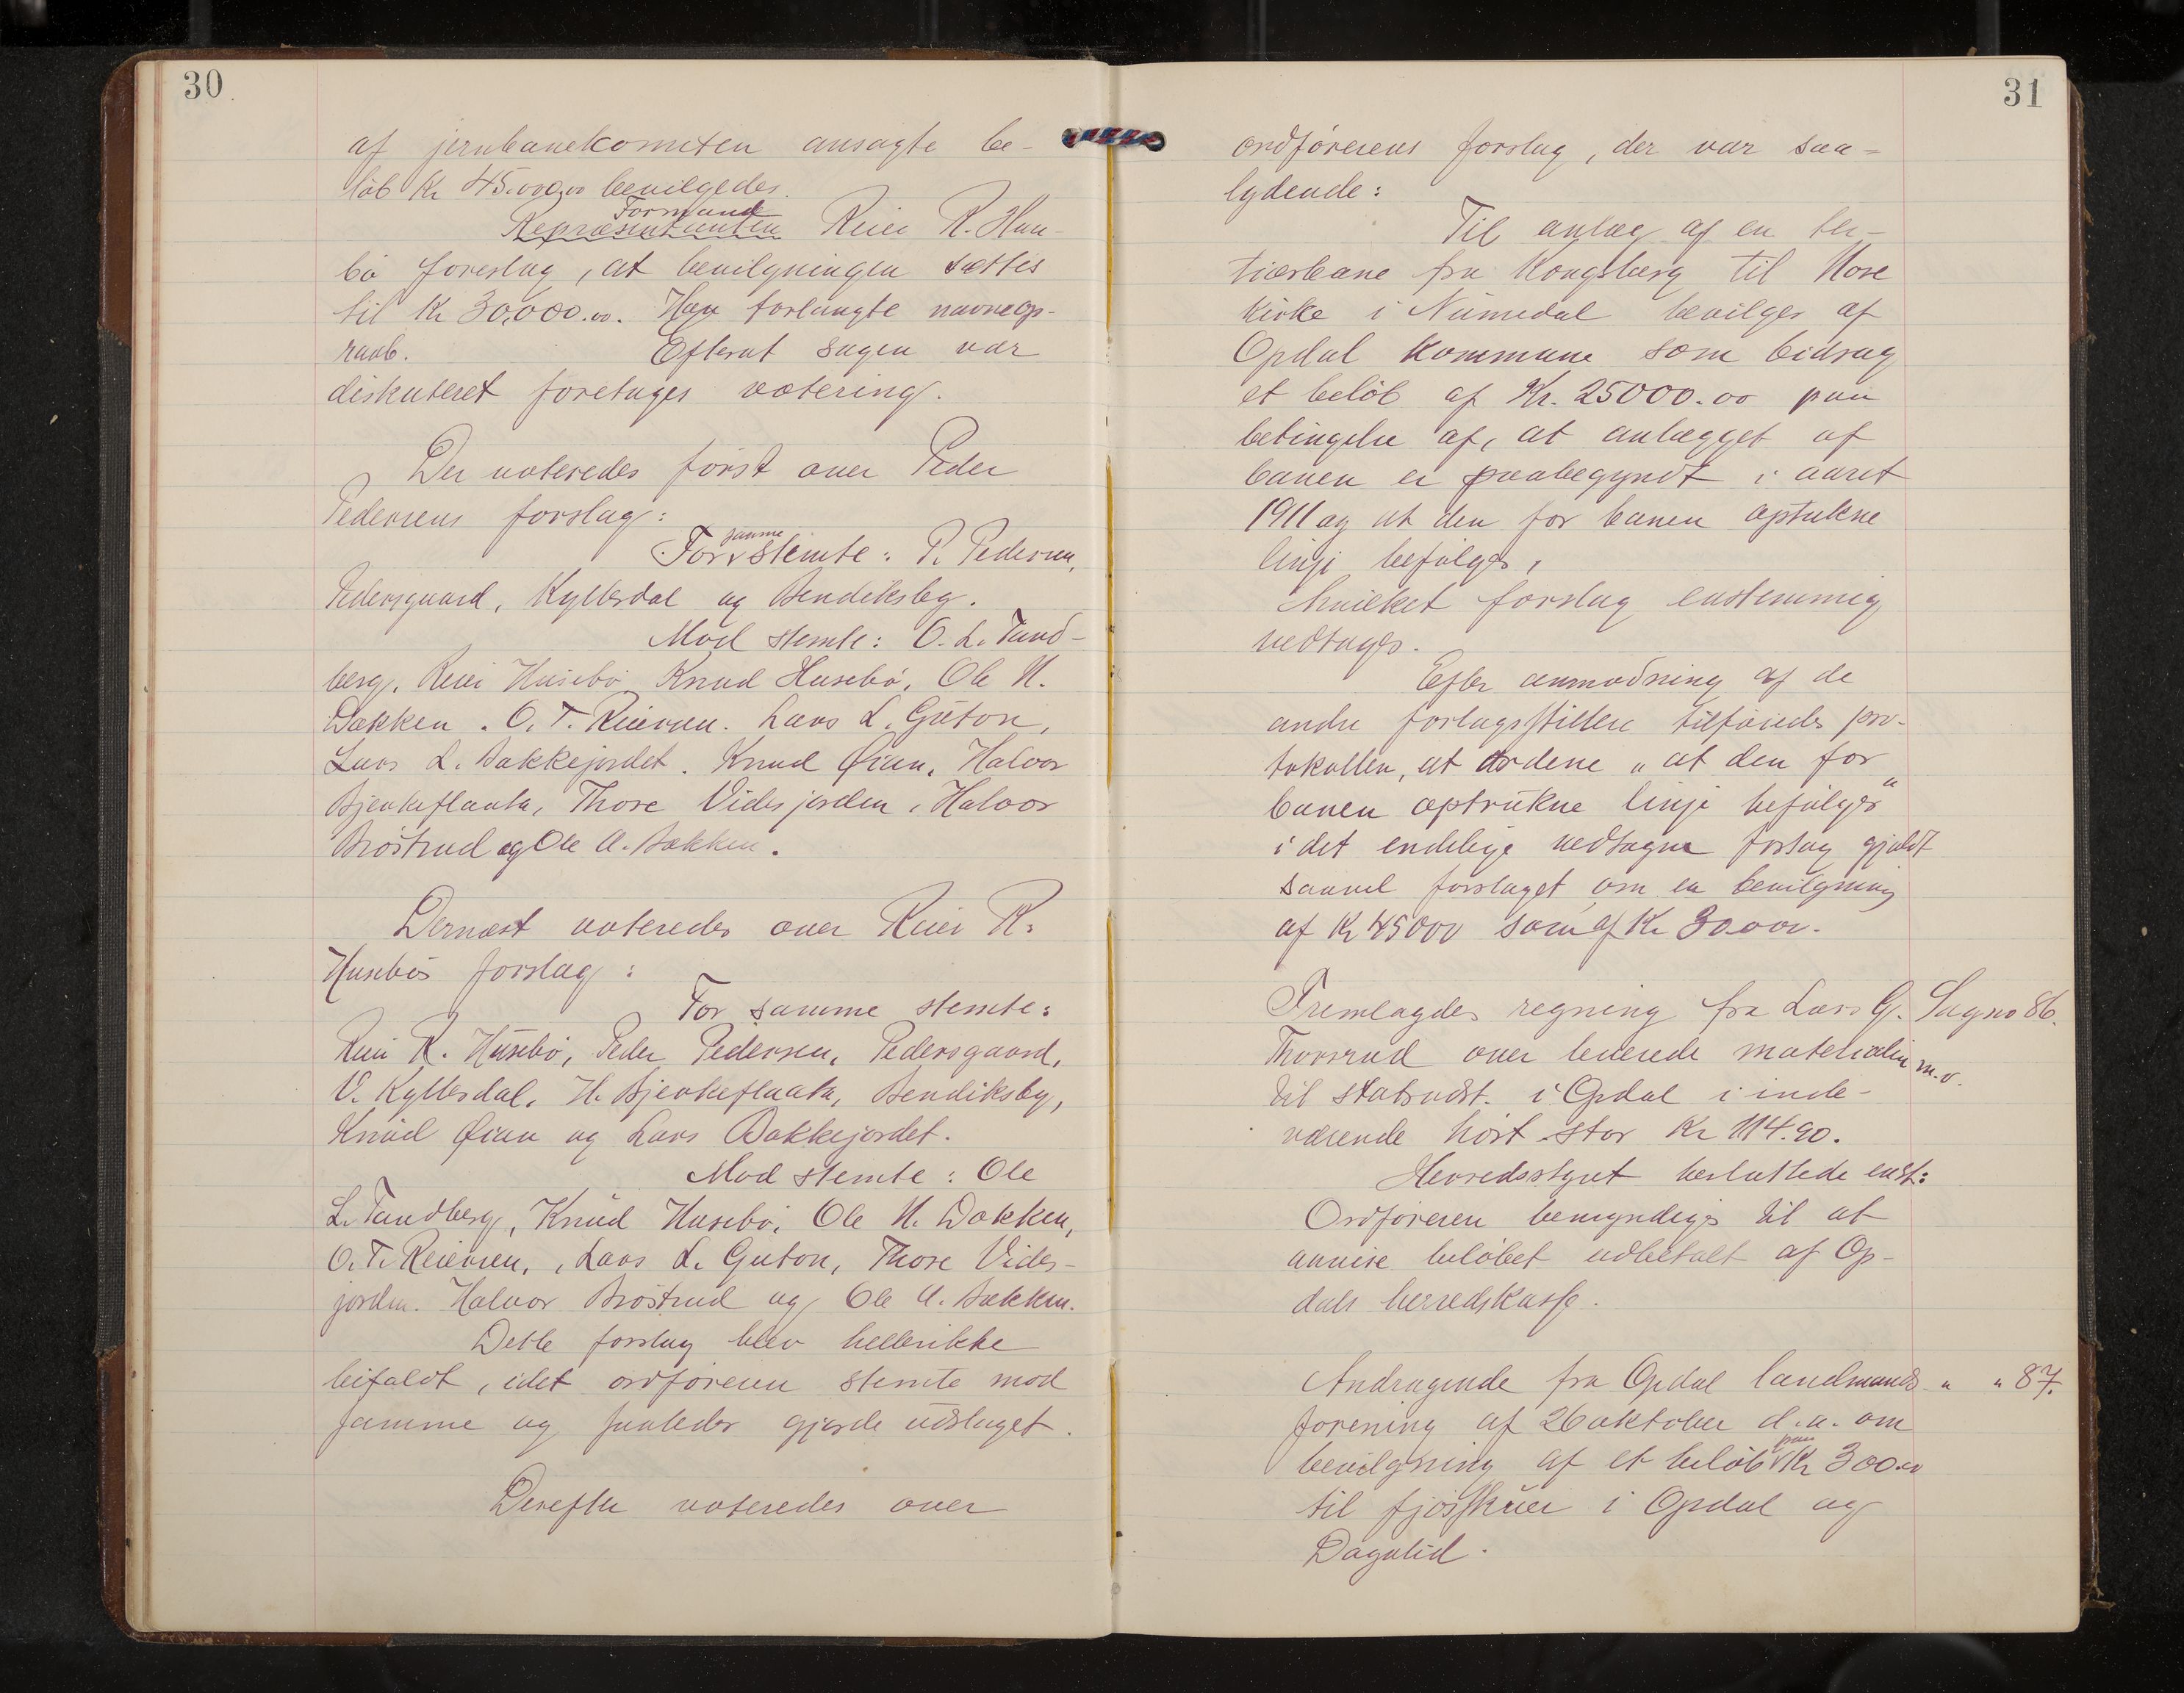 30
af jernbanekomiteen ansagte be-
løb Kr 45.000,00 bevilgedes.
Formand
Repræsentanten Reier R. Huse-
bø foreslog, at bevilgningen sættes
til Kr 30,000.00. Han forlangte navneop-
raab. Efterat sagen var
diskuteret foretages votering.
Der voteredes først over Peder
Pedersens forslag:
samme
For stemte: P. Pedersen,
Pedersgaard, Kyllesdal og Bendiksby.
Mod stemte: O. L. Tand-
berg, Reier Husebø Knud Husebø, Ole N.
Dokken. O. T. Reiersen. Lars L. Guton,
Lars L. Bakkejordet. Knud Øian, Halvor
Bjerkeflaata, Thore Videsjorden, Halvor
Brøstrud og Ole A. Bakken.
Dernæst voteredes over Reier R.
Husebøs forslag:
For samme stemte:
Reier R. Husebø, Peder Pedersen, Pedersgaard,
V. Kyllesdal, H. Bjerkeflaata, Bendiksby,
Knud Øian og Lars Bakkejordet.
Mod stemte: Ole
L. Tandberg, Knud Husebø, Ole N. Dokken,
O. T. Reiersen, Lars L. Guton, Thore Vides-
jorden. Halvor Brøstrud og Ole A. Bakken.
Dette forslag blev hellerikke
bifaldt, idet ordføreren stemte mod
samme og saaledes gjorde udslaget.
Derefter voteredes over
31
ordførerens forslag, der var saa-
lydende:
Til anlæg af en ter-
tiærbane fra Kongsberg til Nore
kirke i Numedal bevilges af
Opdal kommune som bidrag
et beløb af Kr. 25000.00 paa
betingelse af, at anlægget af
banen er paabegyndt i aaret
1911 og at den for banen optukne
linje befølges,
hvilket forslag enstemmig
vedtages.
Efter anmodning af de
andre forslagsstillere tilføiedes pro-
tokollen, at ordene „at den for
banen optrukne linje befølges"
i det endelige vedtagne forslag gjaldt
saavel forslaget om en bevilgning
af Kr 45000 som af Kr 30000.
Fremlagdes regning fra Lars G. Sagno 86.
Thorsrud over leverede materialier m.v.
til statsudst. i Opdal i inde-
værende høst stor Kr 114.90.
Herredsstyret besluttede enst:
Ordføreren bemyndiges til at
anvise beløbet udbetalt af Op-
dals herredskasse.
Andragende fra Opdal landmands- " " 87.
forening af 26 oktober d.a. om
paa
bevilgning af et beløb Kr 300.00
til fjøsskuer i Opdal og
Dagalid.